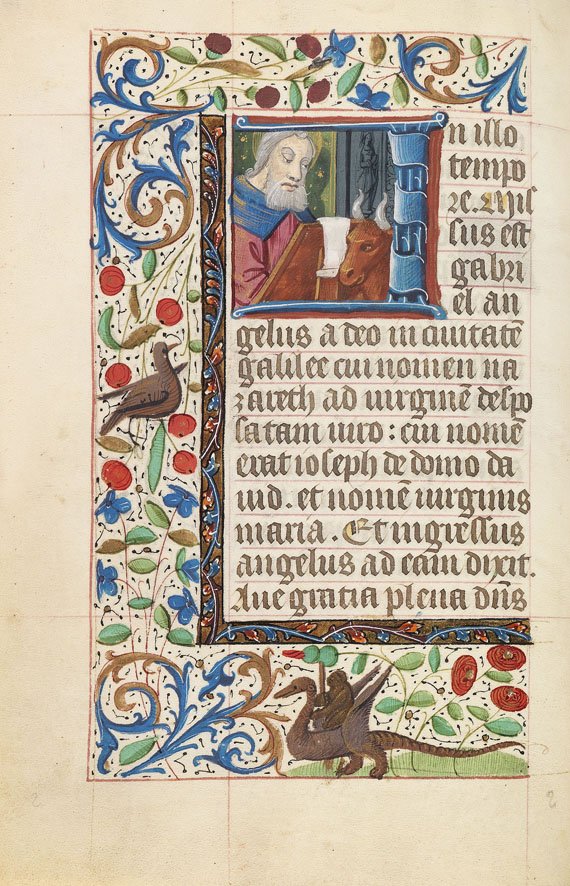 In illo
tempo
re. Mis
sus est
gabri
el an
gelus a deo in ciuitatē
galilee cui nomen na
zareth ad uirginē despo
satam uiro : cui nomē
erat ioseph de domo da
uid . et nomē uirginis
maria . Et ingressus
angelus ad eam dixit.
Aue gratia plena dn̄s